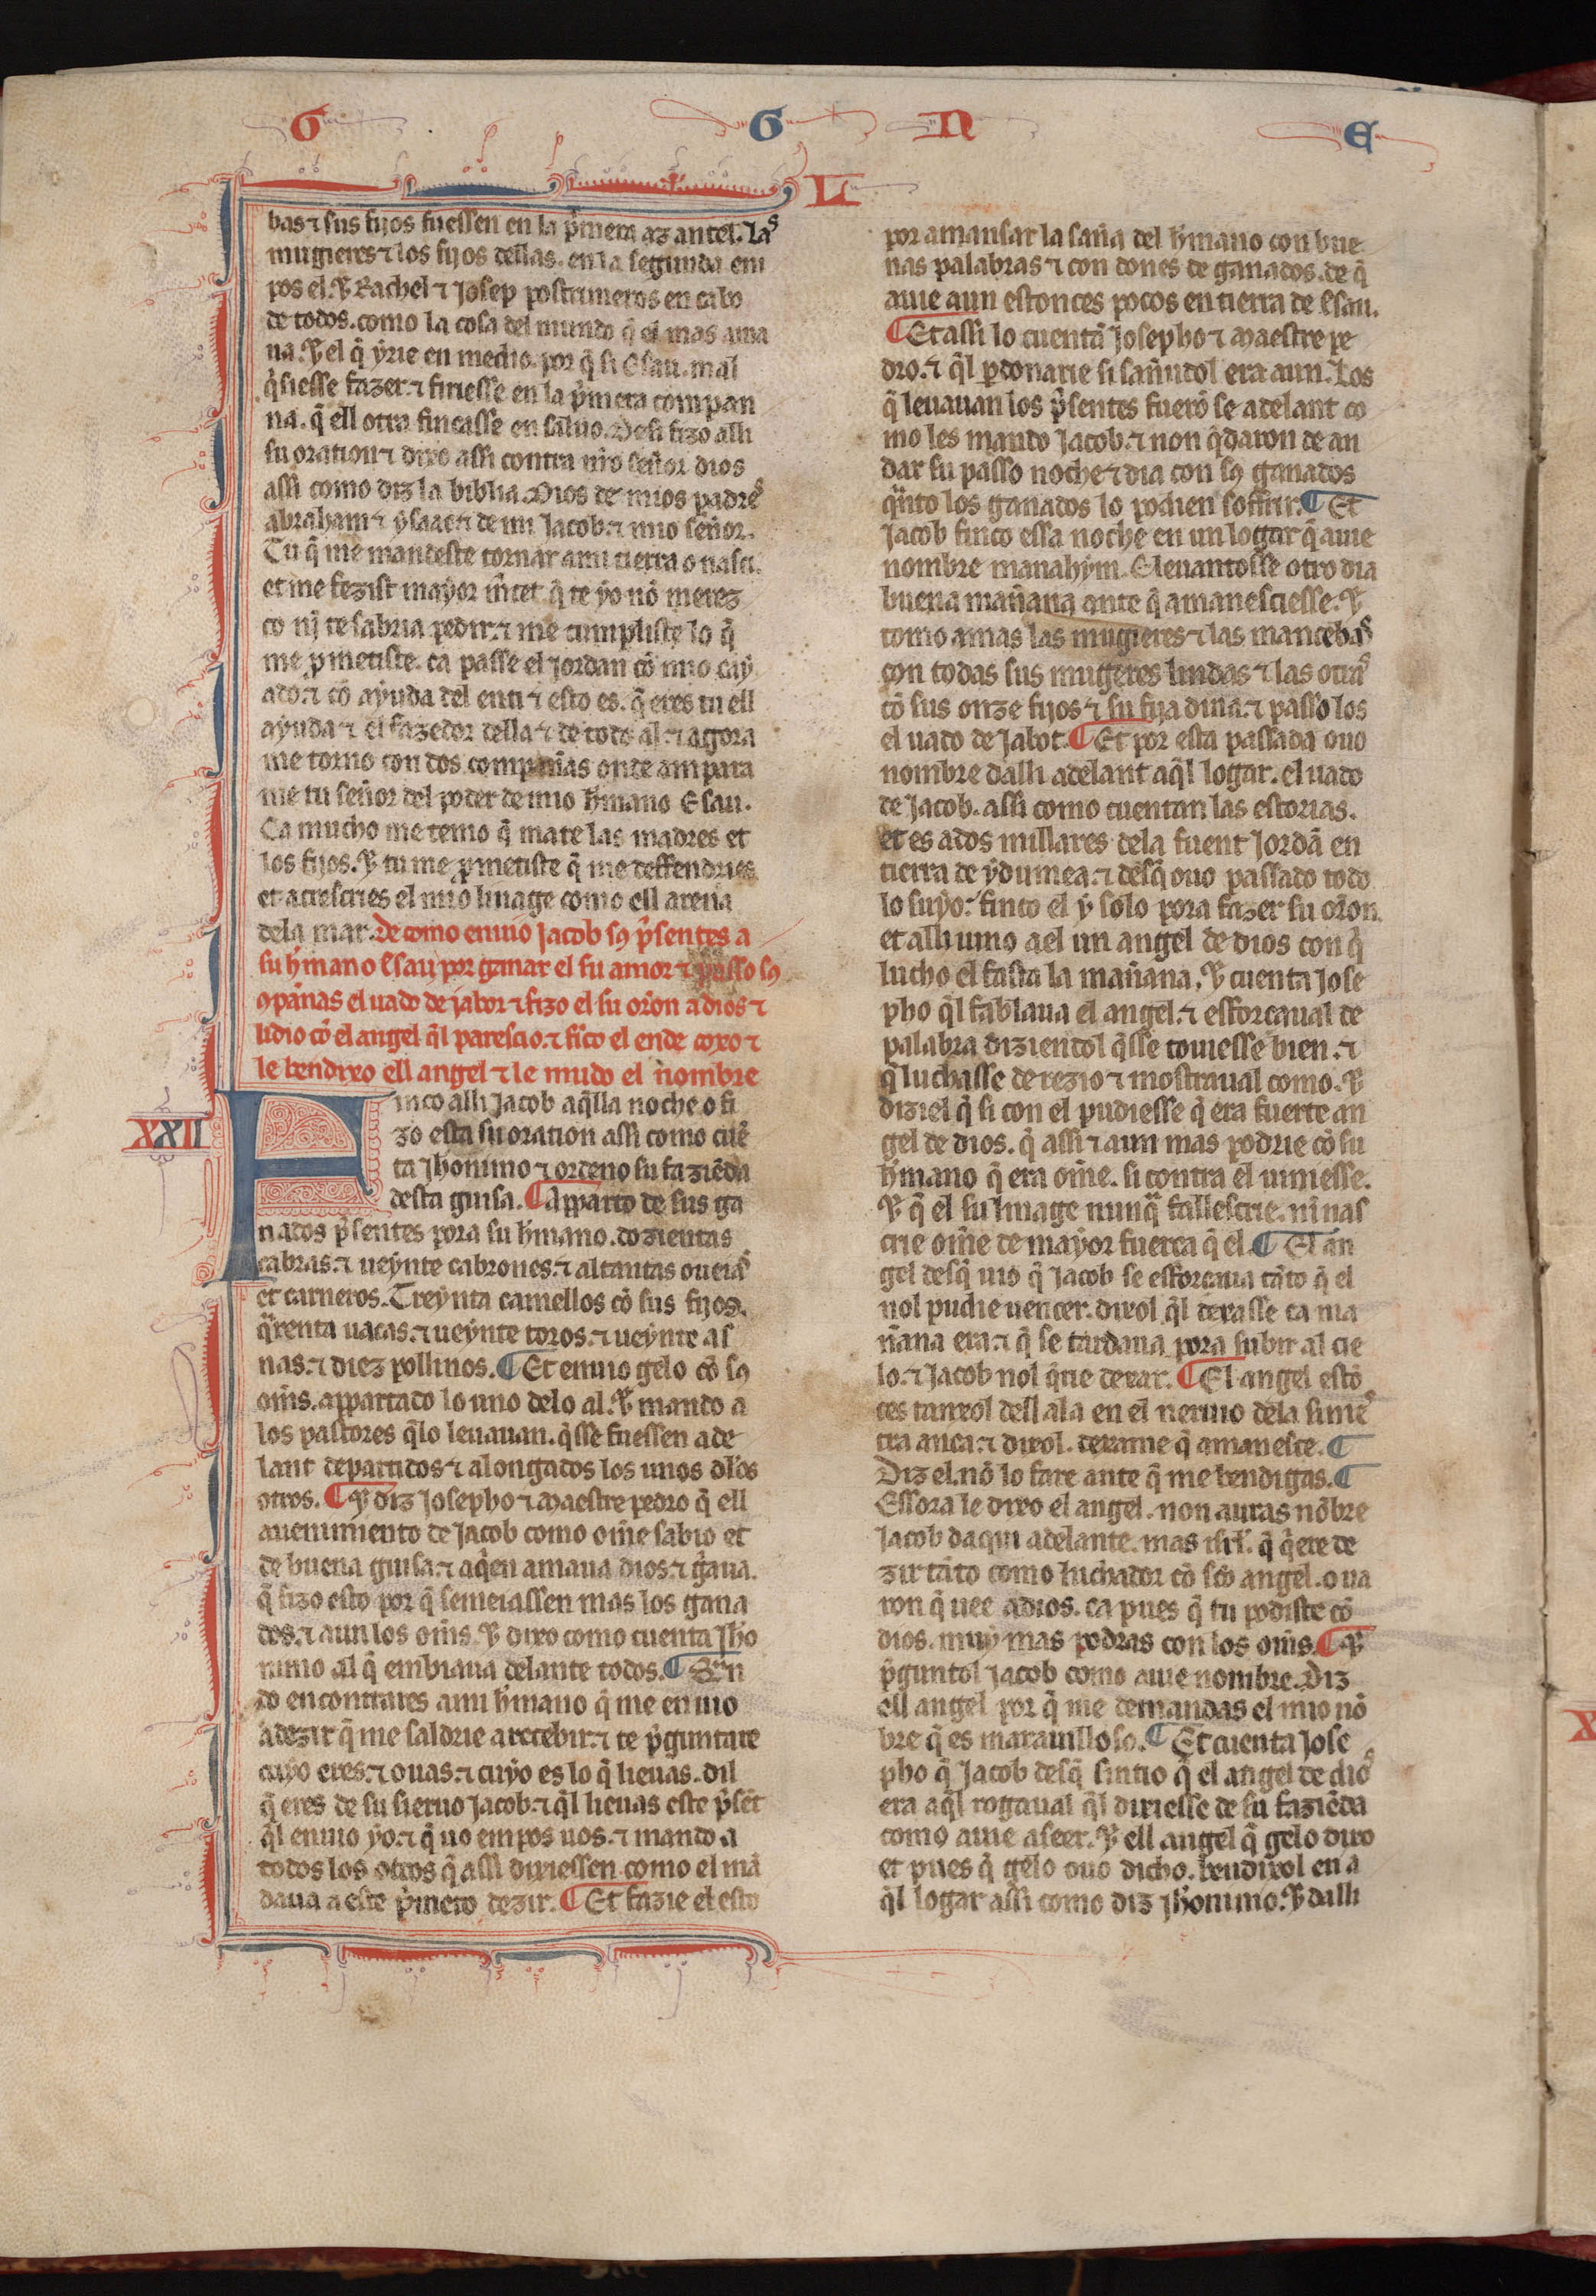 G G N E
LI
bas ⁊ sus fijos fuessen en la p̃mera az antel. Las
mugieres ⁊ los fijos dellas. en la segunda em
pos el. Ꝑ Rachel ⁊ Josep postrimeros en cabo
de todos. como la cosa del mundo q̃ el mas ama
ua. Ꝑ el q̃ yrie en medio. por q̃ si Esau. mal
q̃siesse fazer. ⁊ firiesse en la p̃mera compan
na. q̃ ell otra fincasse en saluo. Desi fizo alli
su oration ⁊ dixo assi contra nr̃o señor dios
assi como diz la biblia. Dios de mios padres
abraham ⁊ ysaac ⁊ de mi Jacob. ⁊ mio señor.
Tu q̃ me mandeste tornar a mi tierra o nasci.
et me fezist mayor m̃cet q̃ te yo nõ merez
co nĩ te sabria pedir. ⁊ me cumpliste lo q̃
me ꝓmetiste. ca passe el Jordan cõ mio cay
ado. ⁊ cõ ayuda del enti ⁊ esto es. q̃ eres tu ell
ayuda ⁊ el fazedor della ⁊ de todo al. ⁊ agora
me torno con dos compañas onde ampara
me tu señor del poder de mio h̃mano Esau.
Ca mucho me temo q̃ mate las madres et
los fijos. Ꝑ tu me ꝓmetiste q̃ me deffendries
et acrescries el mio linage como ell arena
dela mar. De como enuio Jacob sꝯ p̃sentes a
su h̃mano Esau por ganar el su amor ⁊ passo sꝯ
ꝯpañas el uado de jabot ⁊ fizo el su orõn a dios ⁊
lidio cõ el angel q̃l parescio. ⁊ fĩco el ende coxo ⁊
le bendixo ell angel ⁊ le mudo el nombre
XXII
Finco alli Jacob aq̃lla noche o fi
zo esta su oration assi como cuẽ
ta Jh̃onimo ⁊ ordeno su faziẽda
desta guisa. ¶ Apparto de sus ga
nados p̃sentes pora su h̃mano. dozientas
cabras. ⁊ ueynte cabrones. ⁊ altantas oueias
et carneros. Treynta camellos cõ sus fijos.
q̃renta uacas. ⁊ ueynte toros. ⁊ ueynte as
nas. ⁊ diez pollinos. ¶ Et enuio gelo cõ sꝯ
om̃s. appartado lo uno delo al. Ꝑ mando a
los pastores q̃lo leuauan. q̃sse fuessen ade
lant departidos ⁊ alongados los unos dlos
otros. ¶ Ꝑ diz Josepho ⁊ maestre pedro q̃ ell
auenimiento de Jacob como om̃e sabio et
de buena guisa. ⁊ aq̃en amaua dios. ⁊ g̃aua.
q̃ fizo esto por q̃ semeiassen mas los gana
dos. ⁊ aun los om̃s. Ꝑ dixo como cuenta Jh̃o
nimo al q̃ embiaua delante todos. ¶ Quan
do encontrares a mi h̃mano q̃ me enuio
a dezir q̃ me saldrie a recebir. ⁊ te p̃guntare
cuyo eres. ⁊ o uas. ⁊ cuyo es lo q̃ lieuas. dil
q̃ eres de su sieruo Jacob. ⁊ q̃l lieuas este p̃sẽt
q̃l enuio yo. ⁊ q̃ uo empos uos. ⁊ mando a
todos los otros q̃ assi dixiessen como el mã
daua a este p̃mero dezir. ¶ Et fazie el esto
por amansar la saña del h̃mano con bue
nas palabras ⁊ con dones de ganados. de q̃
auie aun estonces pocos en tierra de Esau.
¶ Et assi lo cuentã Josepho ⁊ maestre pe
dro. ⁊ q̃l ꝑdonarie si sañudol era aun. Los
q̃ leuauan los p̃sentes fuerõ se adelant co
mo les mando Jacob. ⁊ non q̃daron de an
dar su passo noche ⁊ dia con sꝯ ganados
q̃nto los ganados lo podien soffrir. ¶ Et
Jacob finco essa noche en un logar q̃ auie
nombre manahym. E leuantosse otro dia
buena mañana ante q̃ amanesciesse. Ꝑ
tomo amas las mugieres ⁊ las mancebas
con todas sus mugeres lindas ⁊ las otras
cõ sus onze fijos ⁊ su fija dina. ⁊ passo los
el uado de Jabot. ¶ Et por esta passada ouo
nombre dalli adelant aq̃l logar. el uado
de Jacob. assi como cuentan las estorias.
et es a dos millares dela fuent Jordã en
tierra de ydumea. ⁊ desq̃ ouo passado todo
lo suyo. finco el y solo pora fazer su orõn.
et alli uino a el un angel de dios con q̃
lucho el fasta la mañana. Ꝑ cuenta Jose
pho q̃l fablaua el angel. ⁊ esforcaual de
palabra diziendol q̃sse touiesse bien. ⁊
q̃ luchasse de rezio ⁊ mostraual como. Ꝑ
diziel q̃ si con el pudiesse q̃ era fuerte an
gel de dios. q̃ assi ⁊ aun mas podrie cõ su
h̃mano q̃ era om̃e. si contra el uiniesse.
Ꝑ q̃ el su linage nunq̃ fallescrie. ni nas
crie om̃e de mayor fuerca q̃ el. ¶ El an
gel desq̃ uio q̃ Jacob se esforcaua tãto q̃ el
nol pudie uencer. dixol q̃l dexasse ca ma
ñana era. ⁊ q̃ se tardaua pora subir al cie
lo. ⁊ Jacob nol q̃rie dexar. ¶ El angel estõ
ces tanxol dell ala en el neruio dela sinies
tra anca. ⁊ dixol. dexame q̃ amanesce. ¶
Diz el. nõ lo fare ante q̃ me bendigas. ¶
Essora le dixo el angel. non auras nõbre
Jacob daqui adelante. mas isrl̃. q̃ q̃ere de
zir tãto como luchador cõ scõ angel. o ua
ron q̃ uee a dios. ca pues q̃ tu podiste cõ
dios. muy mas podras con los om̃s. ¶ Ꝑ
p̃guntol Jacob como auie nombre. Diz
ell angel por q̃ me demandas el mio nõ
bre q̃ es marauilloso. ¶ Et cuenta Jose
pho q̃ Jacob desq̃ sintio q̃ el angel de dios
era aq̃l rogaual q̃l dixiesse de su faziẽda
como auie a seer. Ꝑ ell angel q̃ gelo dixo
et pues q̃ gelo ouo dicho. bendixol en a
q̃l logar assi como diz Jh̃onimo. Ꝑ dalli